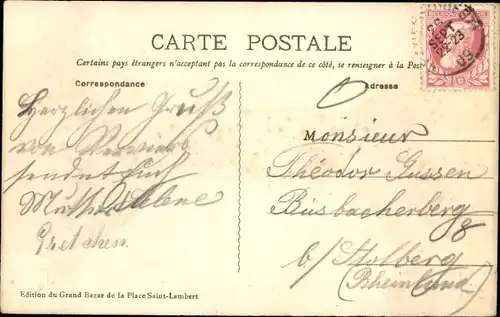 CARTE POSTALE
Certains pays étrangers n'acceptant pas la correspondance de ce côté, se renseigner à la Post
Correspondance
Adresse
Herzlichen Gruß
von Verviers
sendet Euch
Mutter Helene
Gretchen.
Monsieur
Théodor Gussen
Büsbacherberg 8
b/ Stolberg
(Rheinland)
26
SEPT
22-23
09
Edition du Grand Bazar de la Place Saint-Lambert